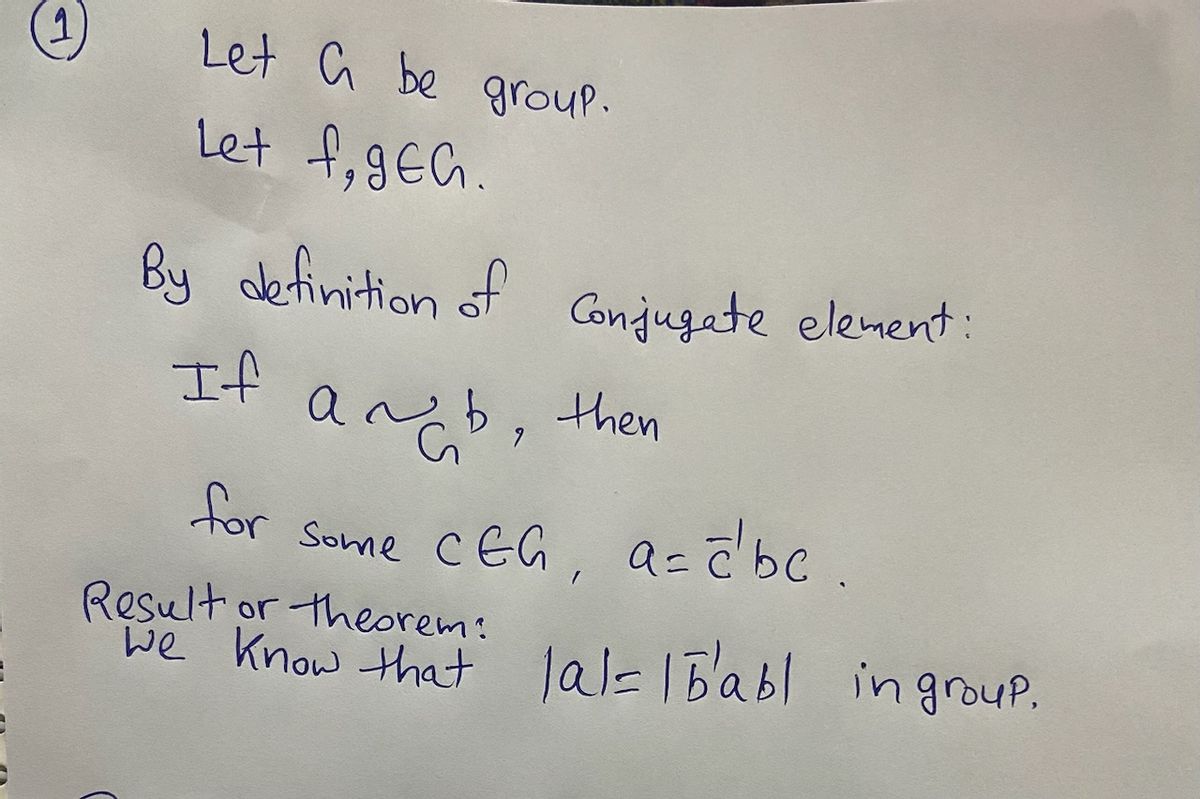 ① Let G be group.
Let f, g ∈ G.
By definition of Conjugate element:
If a ~_G b, then
for some c ∈ G, a = c⁻¹bc.
Result or theorem:
We Know that |a| = |b⁻¹ab| in group.